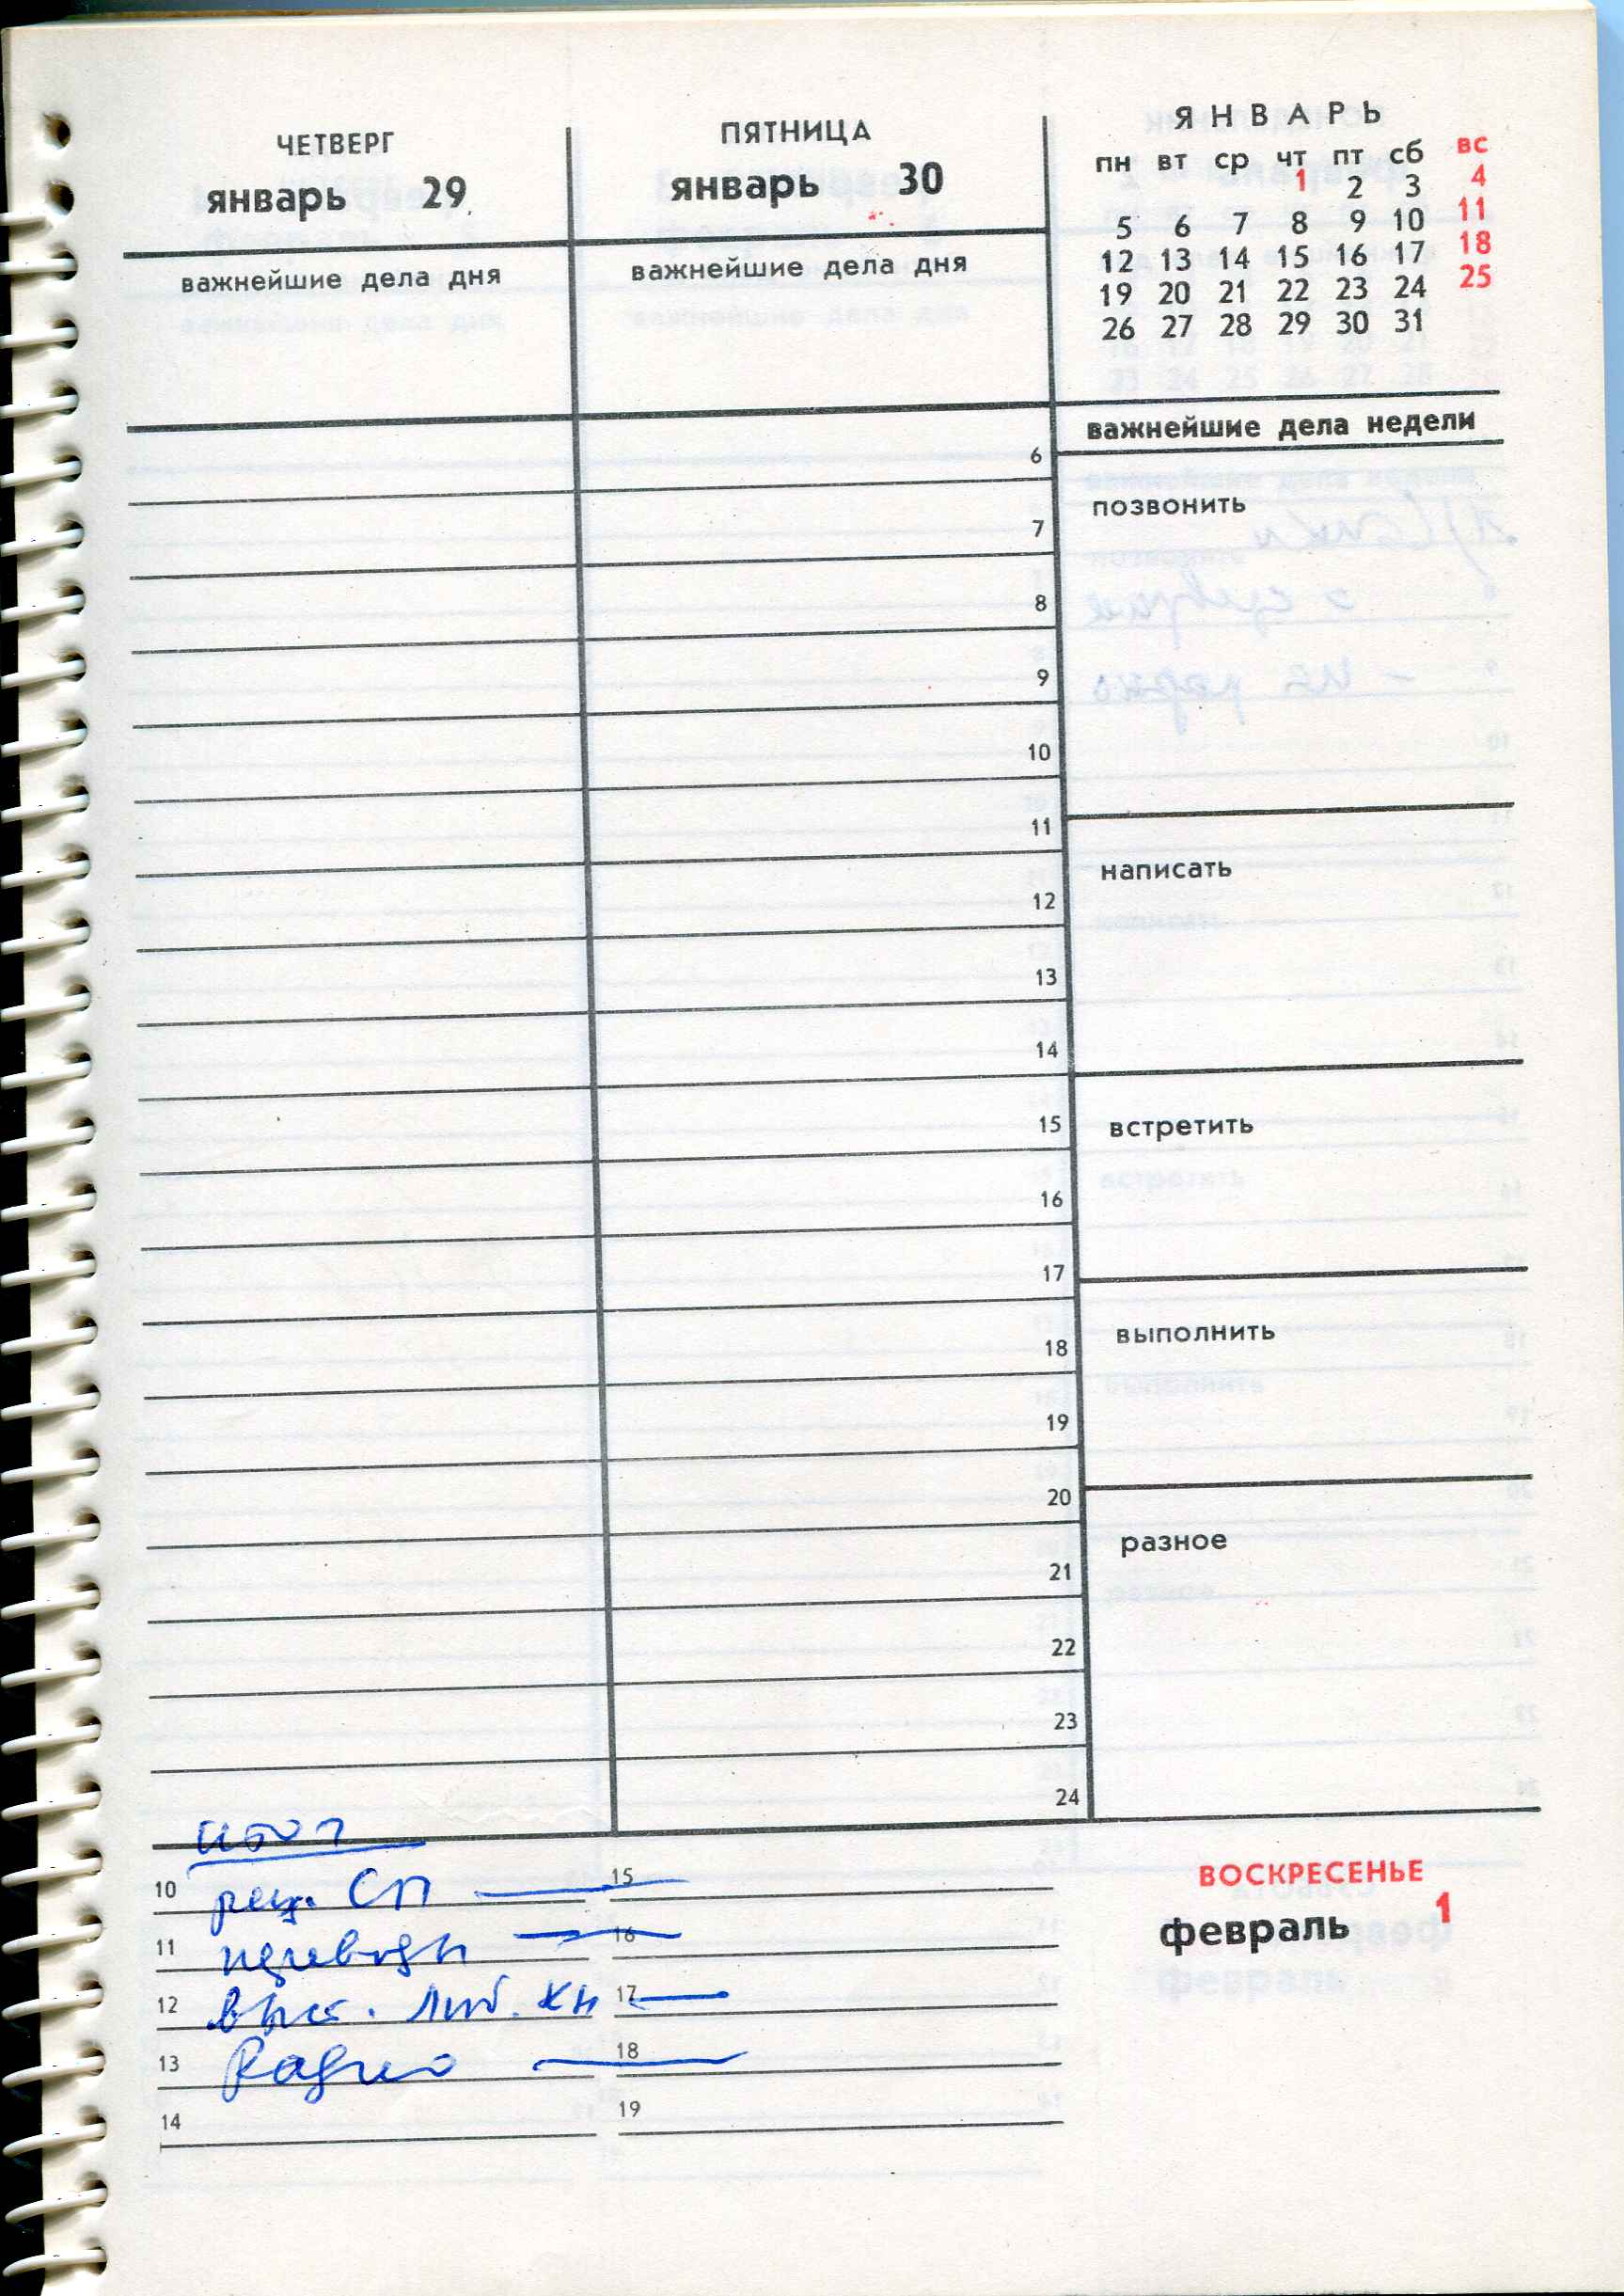 ЧЕТВЕРГ
январь 29
важнейшие дела дня
ПЯТНИЦА
январь 30
важнейшие дела дня
ЯНВАРЬ
пн вт ср чт пт сб вс
1 2 3 4
5 6 7 8 9 10 11
12 13 14 15 16 17 18
19 20 21 22 23 24 25
26 27 28 29 30 31
важнейшие дела недели
6
7
8
9
10
11
12
13
14
15
16
17
18
19
20
21
22
23
24
позвонить
написать
встретить
выполнить
разное
10 рец. СП — 15
11 переводы — 16
12 выс. Люб. кн — 17
13 Радио — 18
14 19
ВОСКРЕСЕНЬЕ
февраль 1